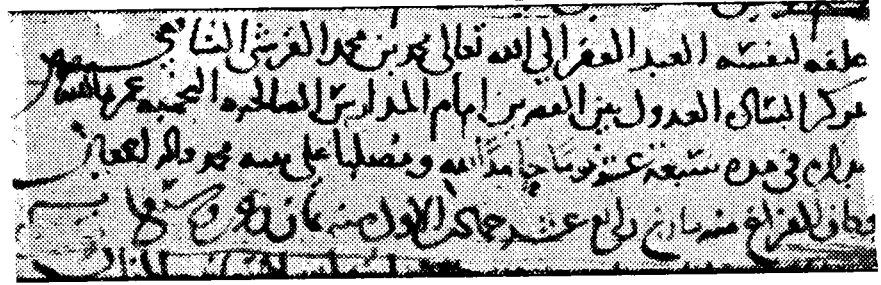 علقه لنفسه العبد الفقير الى الله تعالى محمد بن محمد القرشى الشافعي
بمركز الشاكى العدول بين القصرين امام المدارس الصالحيه النجميه عمرها الله
في مده سبعة عشر يوما حامدا لله ومصليا على نبيه محمد واله
وكان الفراغ منه بتاريخ رابع عشر جمادى الاول سنه ثمان